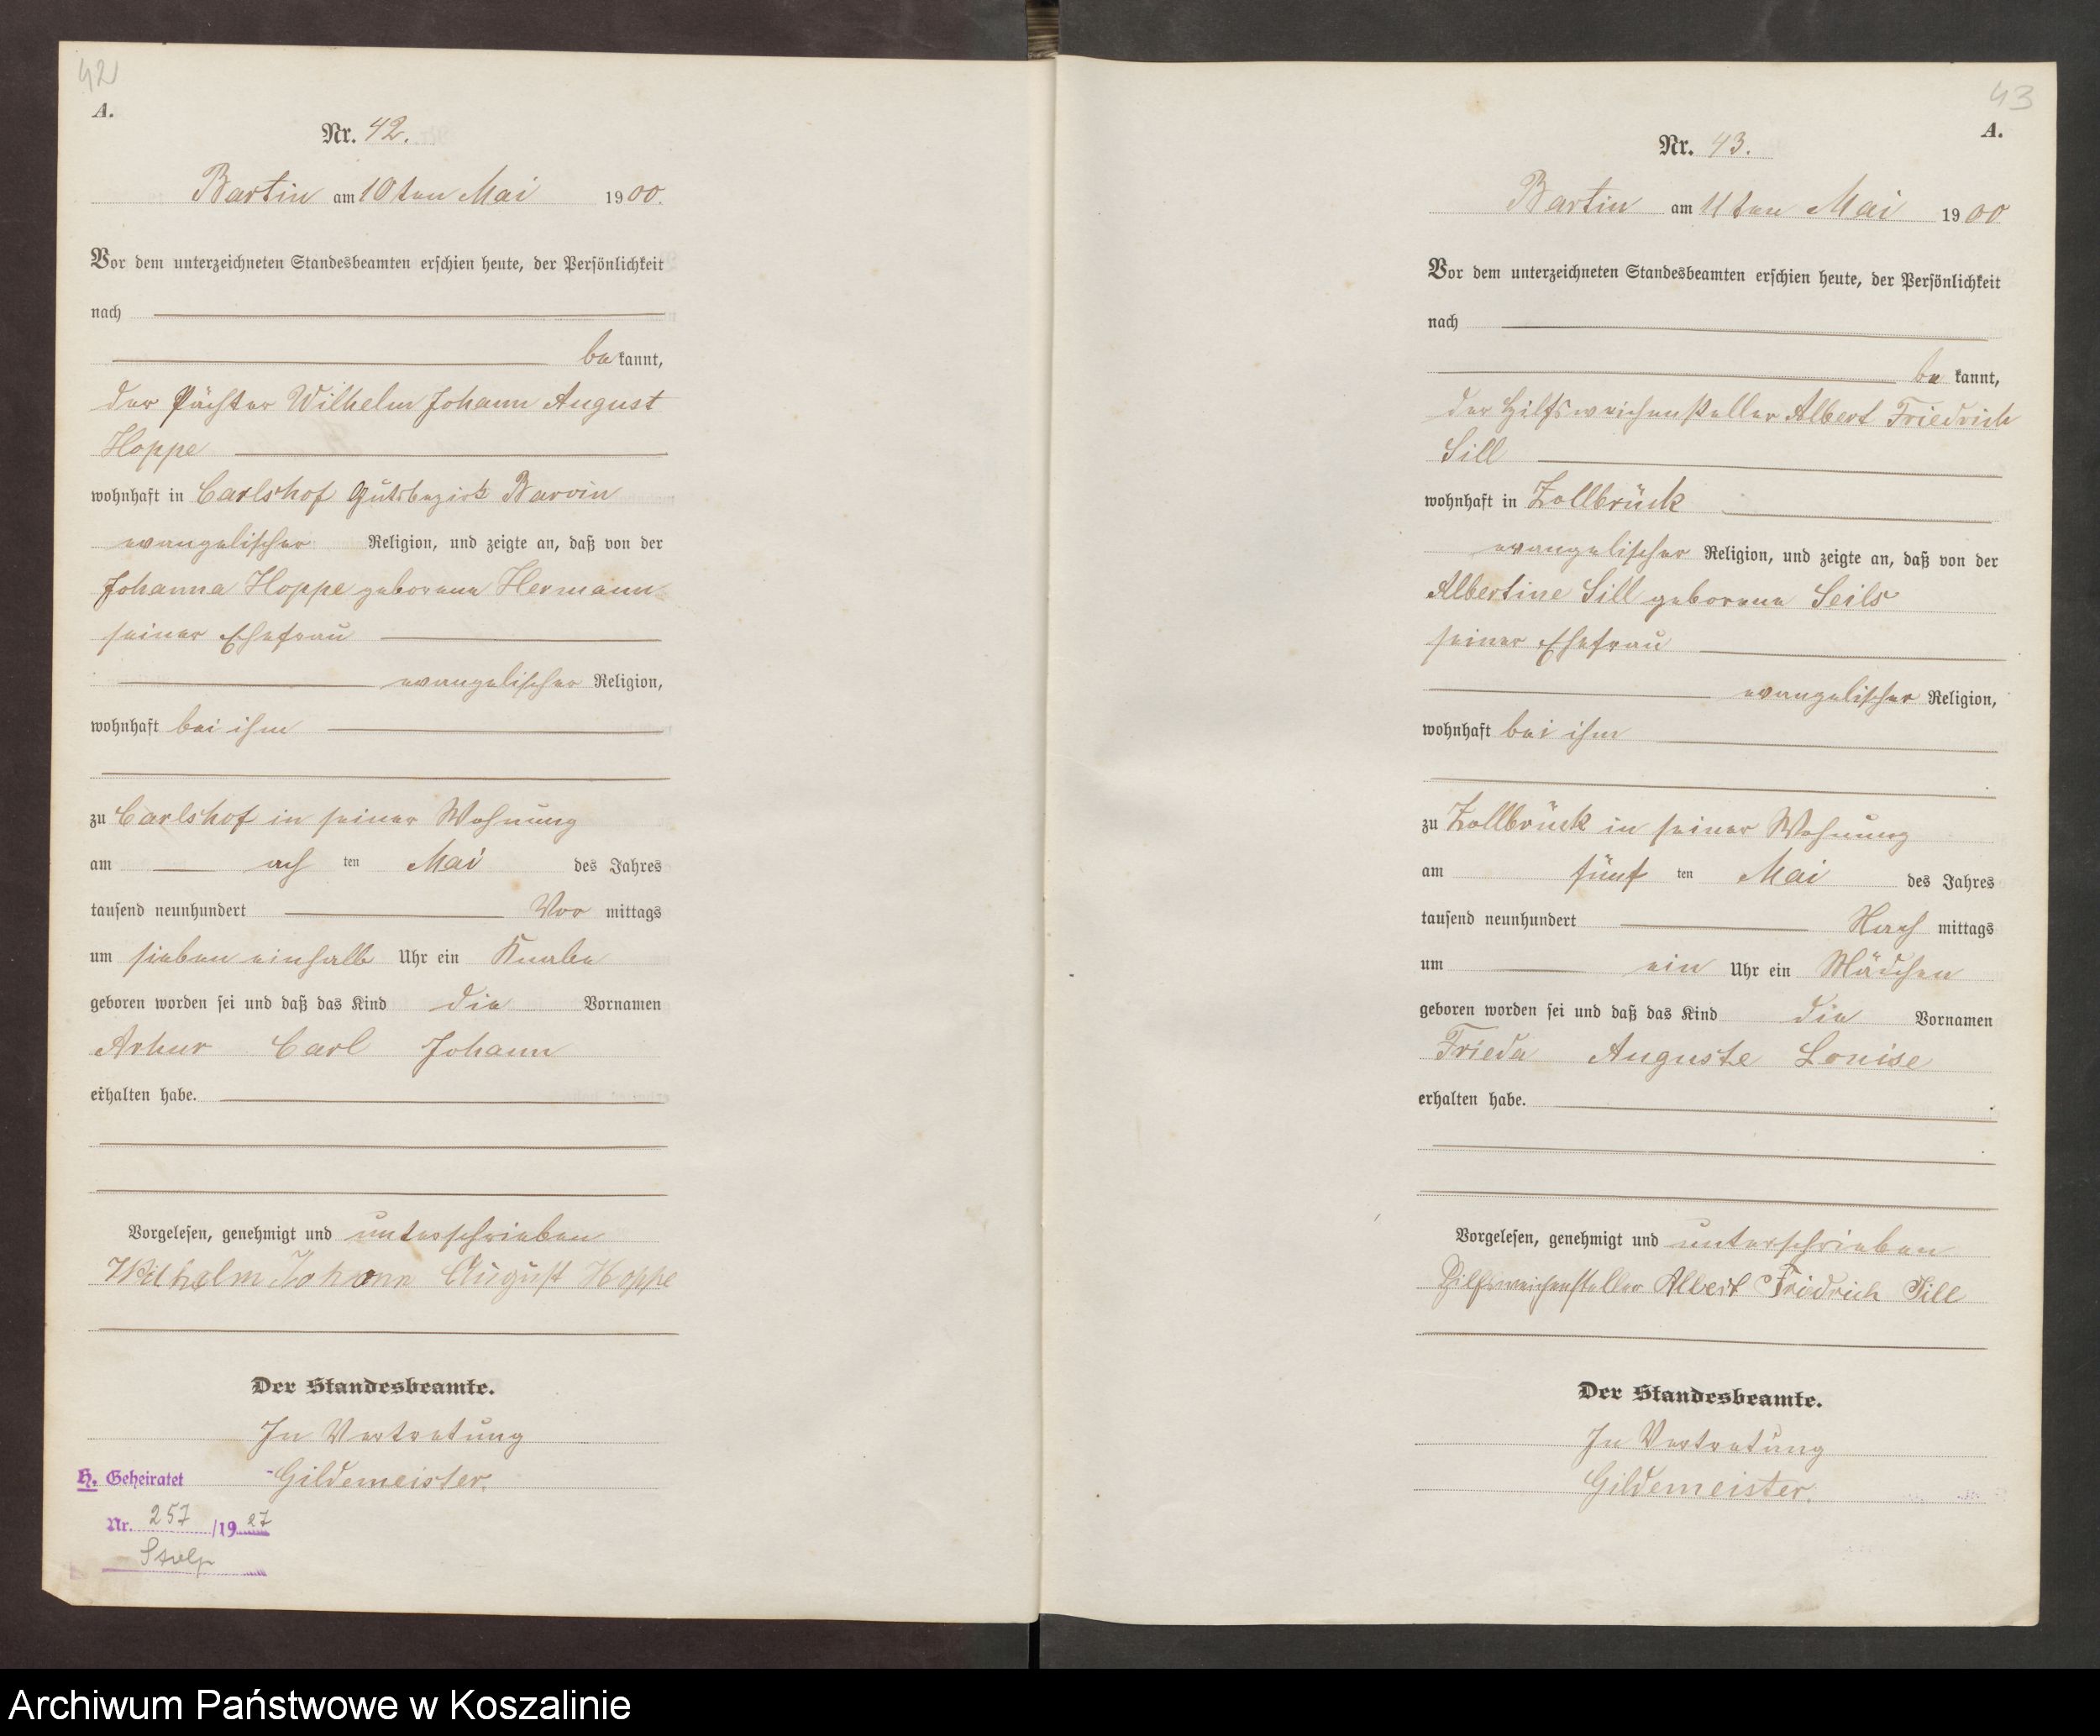 42
A.
Nr. 42.
Bartin am 10ten Mai 1900.
Vor dem unterzeichneten Standesbeamten erschien heute, der Persönlichkeit
nach
bekannt,
der Pächter Wilhelm Johann August
Hoppe
wohnhaft in Carlshof Gutsbezirk Barvin
evangelischer Religion, und zeigte an, daß von der
Johanna Hoppe geborene Hermann
seiner Ehefrau
evangelischer Religion,
wohnhaft bei ihm
zu Carlshof in seiner Wohnung
am ach ten Mai des Jahres
tausend neunhundert Vor mittags
um sieben einhalb Uhr ein Knabe
geboren worden sei und daß das Kind die Vornamen
Arhur Carl Johann
erhalten habe.
Vorgelesen, genehmigt und unterschrieben
Wilhelm Johann August Hoppe
Der Standesbeamte.
In Vertretung
Gildemeister.
H. Geheiratet
Nr. 257 /1927
Stolp
43
A.
Nr. 43.
Bartin am 11ten Mai 1900
Vor dem unterzeichneten Standesbeamten erschien heute, der Persönlichkeit
nach
bekannt,
der Hilfsweichensteller Albert Friedrich
Sill
wohnhaft in Zollbrück
evangelischer Religion, und zeigte an, daß von der
Albertine Sill geborene Seils
seiner Ehefrau
evangelischer Religion,
wohnhaft bei ihm
zu Zollbrück in seiner Wohnung
am fünf ten Mai des Jahres
tausend neunhundert Nach mittags
um ein Uhr ein Mädchen
geboren worden sei und daß das Kind die Vornamen
Frieda Auguste Louise
erhalten habe.
Vorgelesen, genehmigt und unterschrieben
Hilfsweichensteller Albert Friedrich Sill
Der Standesbeamte.
In Vertretung
Gildemeister.
Archiwum Państwowe w Koszalinie